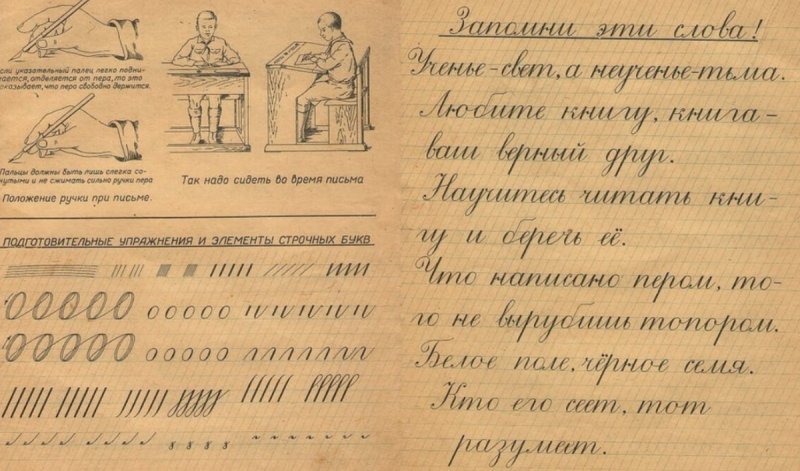 если указательный палец легко подни-
мается, отделяется от пера, то это
показывает, что перо свободно держится.
Пальцы должны быть лишь слегка со-
гнутыми и не сжимать сильно ручки пера
Положение ручки при письме.
Так надо сидеть во время письма
ПОДГОТОВИТЕЛЬНЫЕ УПРАЖНЕНИЯ И ЭЛЕМЕНТЫ СТРОЧНЫХ БУКВ
Запомни эти слова!
Ученье-свет, а неученье-тьма.
Любите книгу, книга-
ваш верный друг.
Научитесь читать кни-
гу и беречь её.
Что написано пером, то-
го не вырубишь топором.
Белое поле, чёрное семя.
Кто его сеет, тот
разумеет.